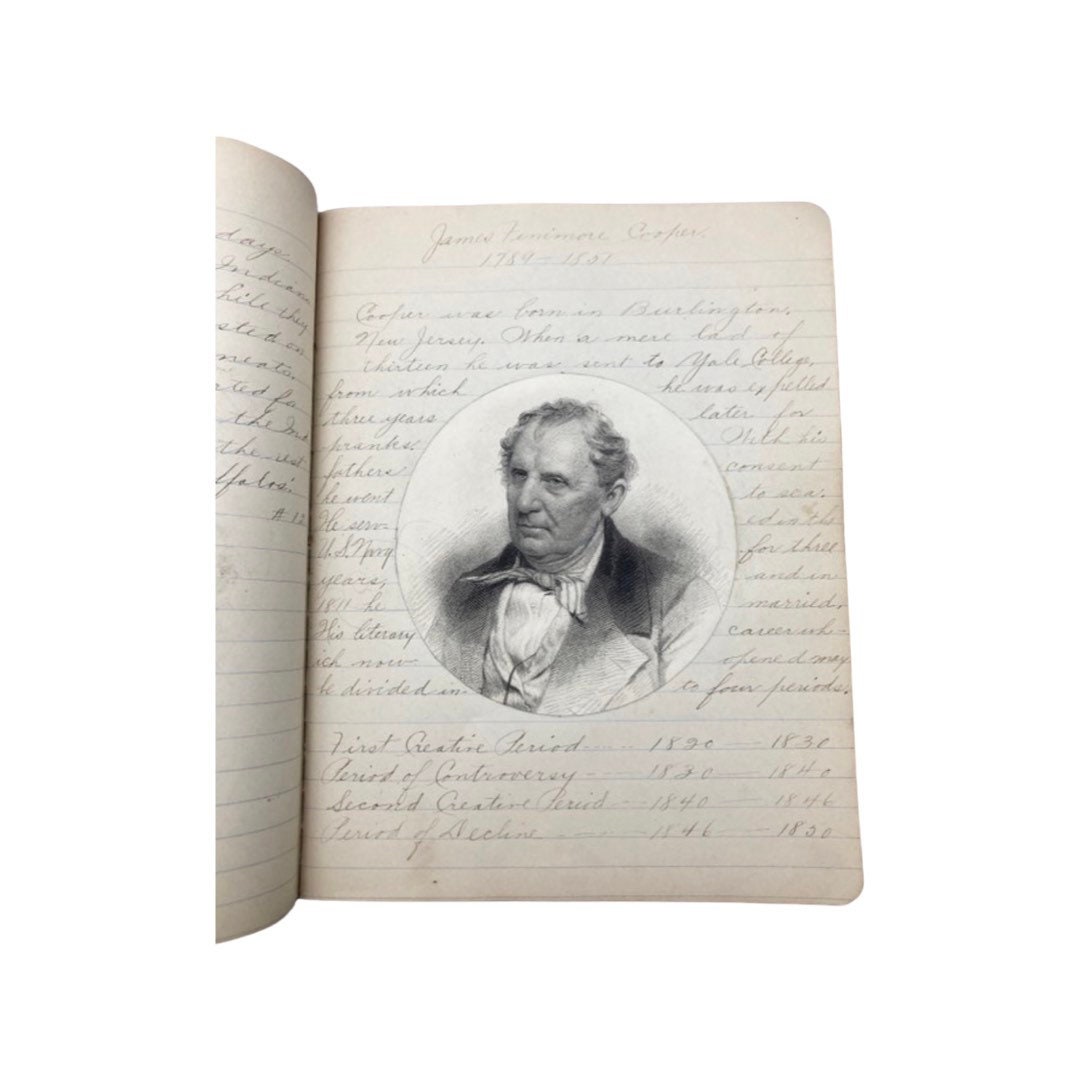 days
Indians
hile they
sted on
meats.
ted fa
the In
the rest
ffalos.
# 12
James Fenimore Cooper.
1789 – 1851
Cooper was born in Burlington,
New Jersey. When a mere lad of
thirteen he was sent to Yale College,
from which he was expelled
three years later for
pranks. With his
fathers consent
he went to sea.
He serv- ed in the
U.S. Navy for three
years, and in
1811 he married.
His literary career wh-
ich now opened may
be divided in- to four periods.
First Creative Period ----- 1820 — 1830
Period of Controversy - — 1830 — 1840
Second Creative Period --- 1840 — 1846
Period of Decline - — - 1846 — 1850